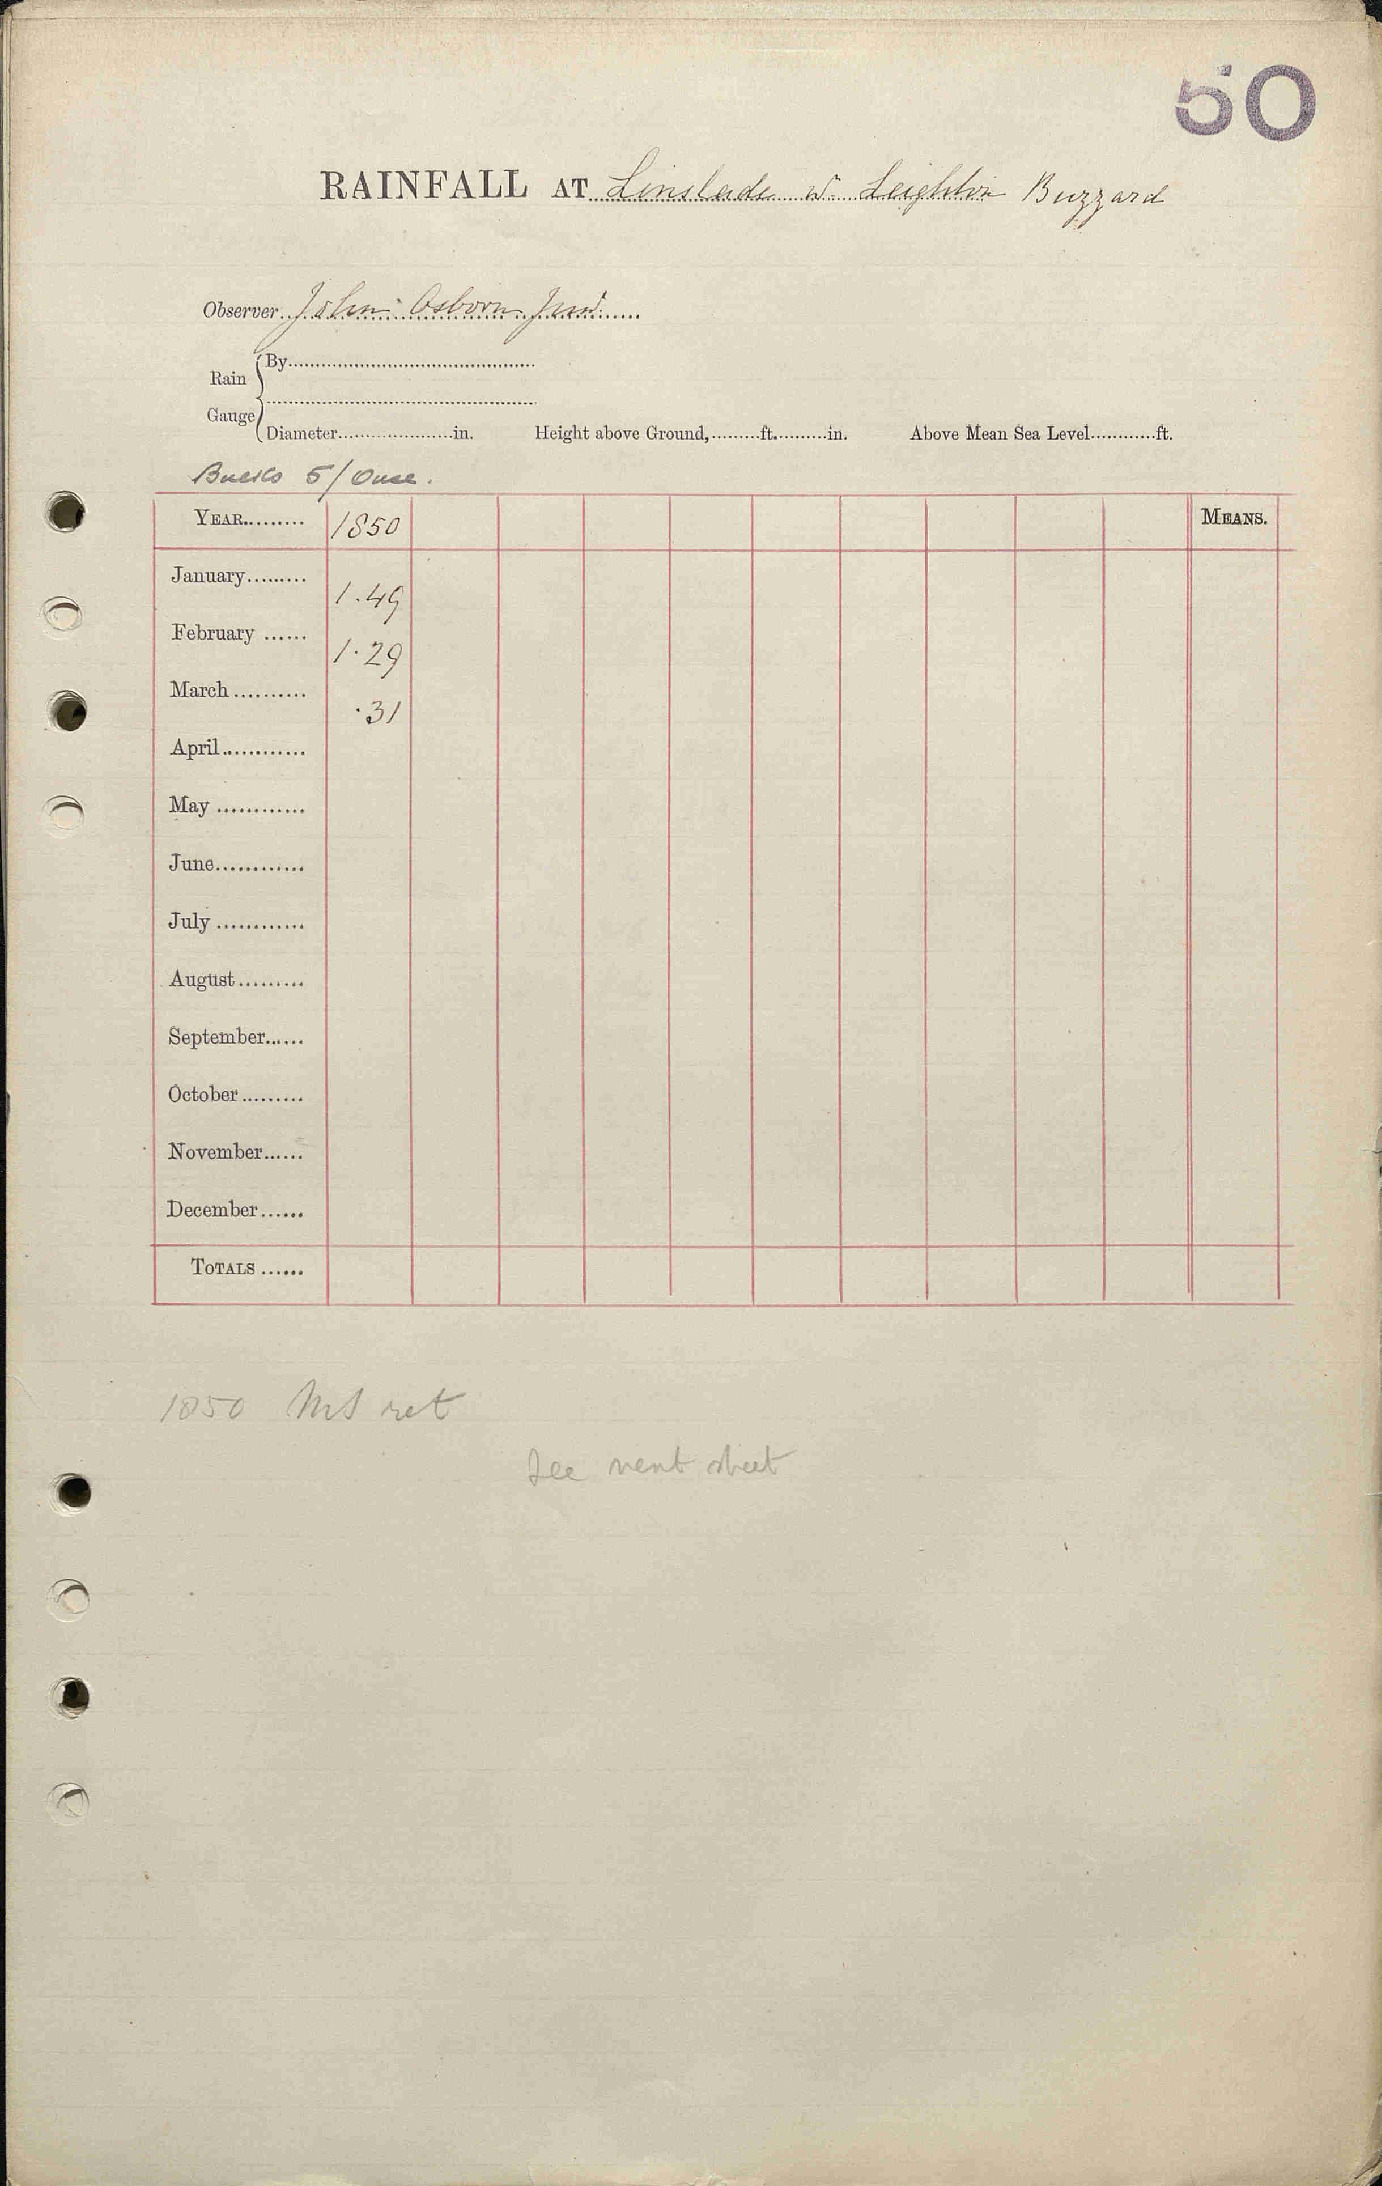 50
RAINFALL AT Linslade nr. Leighton Buzzard
Observer John Osborn Junr.
Rain Gauge
By
Diameter in. Height above Ground, ft. in. Above Mean Sea Level ft.
Bucks 5/Ouse.
YEAR 1850 MEANS.
January 1.49
February 1.29
March .31
April
May
June
July
August
September
October
November
December
TOTALS
1850 MS ret
See next sheet